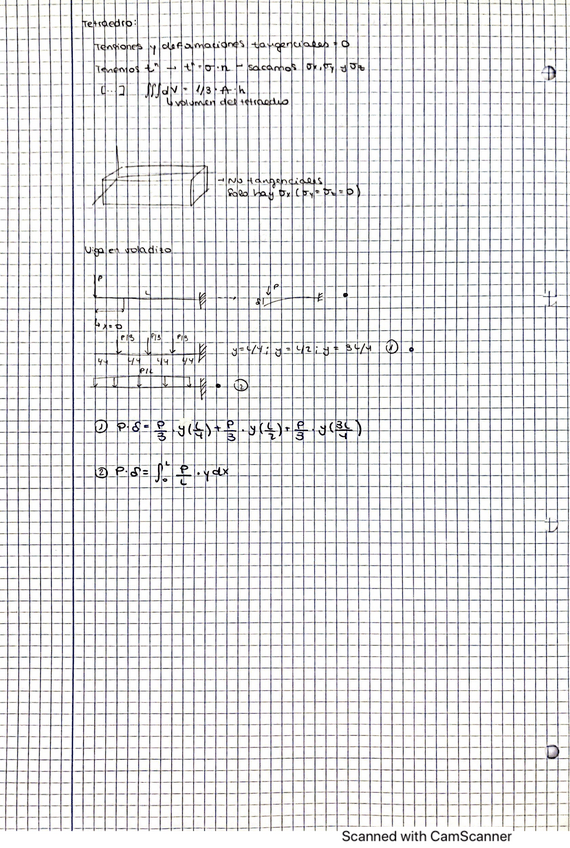 Tetraedro:
Tensiones y deformaciones tangenciales = 0
Tenemos tⁿ → tⁿ = σ · n → sacamos σx, σy y σz
[...] ∭dV = 1/3 · A · h
↳ volumen del tetraedro
→ No tangenciales
Solo hay σx (σy = σz = 0)
Viga en voladizo
P
L
P
δ
↳ x=0
P/3 P/3 P/3
y = L/4 ; y = L/2 ; y = 3L/4 ①
L/4 L/4 L/4 L/4
P/L
②
① P · δ = P/3 · y(L/4) + P/3 · y(L/2) + P/3 · y(3L/4)
② P · δ = ∫₀ᴸ P/L · y dx
Scanned with CamScanner